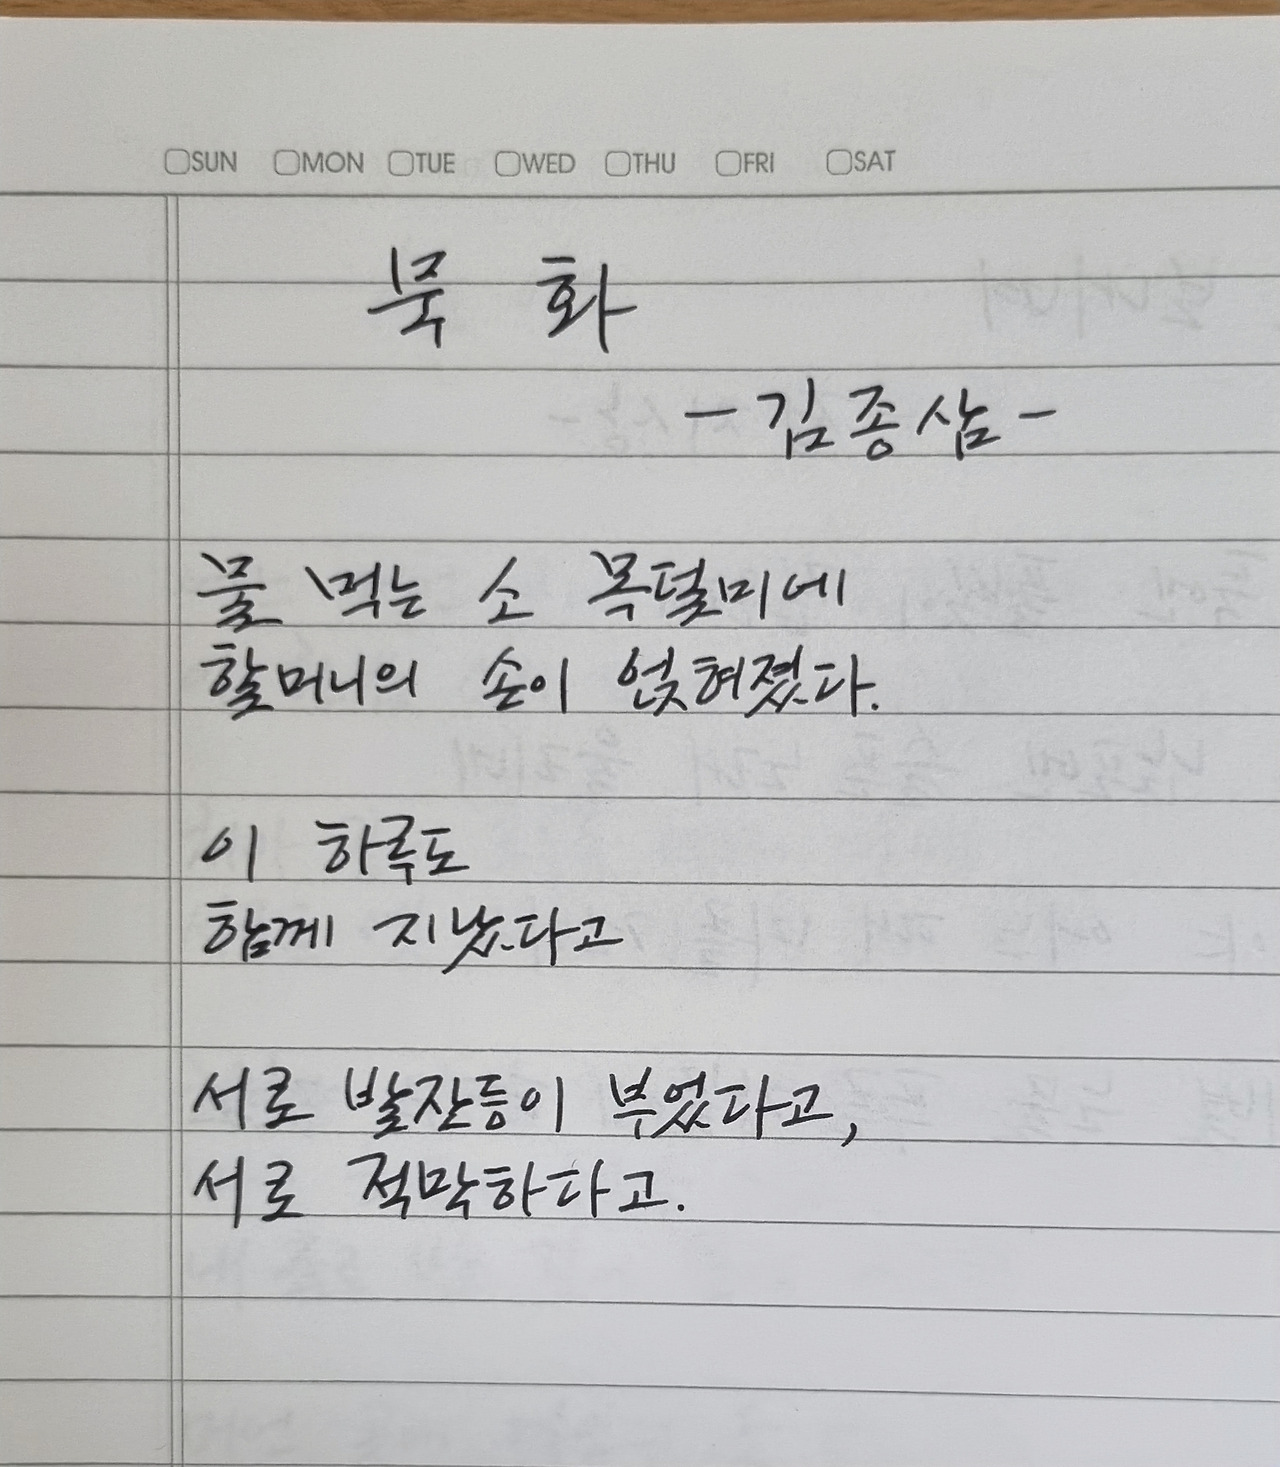 SUN MON TUE WED THU FRI SAT
묵 화
-김종삼-
물 먹는 소 목덜미에
할머니의 손이 얹혀졌다.
이 하루도
함께 지났다고
서로 발잔등이 부었다고,
서로 적막하다고.